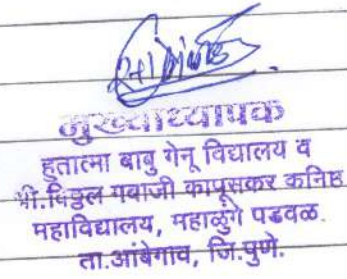 मुख्याध्यापक
हुतात्मा बाबु गेनू विद्यालय व
श्री.विठ्ठल गबाजी कापूसकर कनिष्ठ
महाविद्यालय, महाळुंगे पडवळ.
ता.आंबेगाव, जि.पुणे.